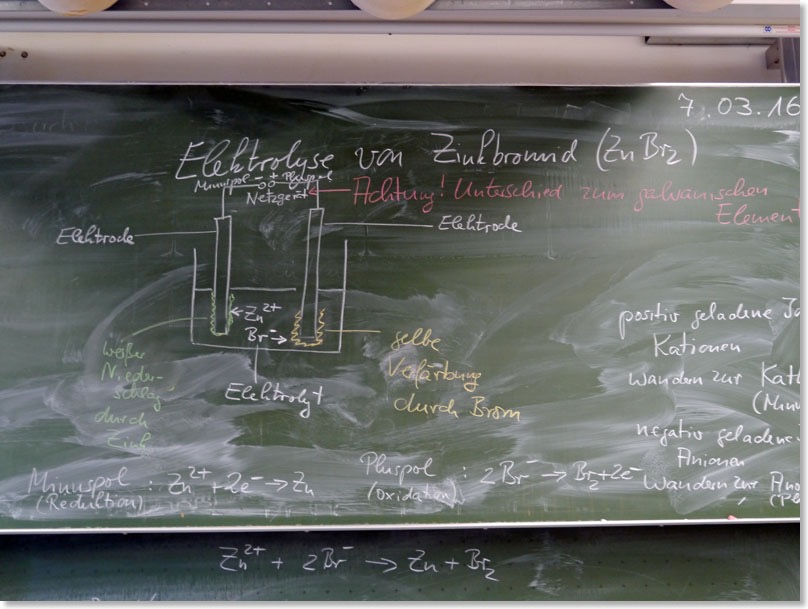 7.03.16
Elektrolyse von Zinkbromid (ZnBr₂)
Minuspol - + Pluspol
Netzgerät
Achtung! Unterschied zum galvanischen
Element
Elektrode
Elektrode
Zn²⁺
Br⁻
weißer
Nieder-
schlag
durch
Zink
gelbe
Verfärbung
durch Brom
Elektrolyt
positiv geladene
Kationen
wandern zur Kat
(Minu
negativ geladene
Anionen
wandern zur Ano
Minuspol : Zn²⁺ + 2e⁻ → Zn
(Reduktion)
Pluspol : 2Br⁻ → Br₂ + 2e⁻
(Oxidation)
Zn²⁺ + 2Br⁻ → Zn + Br₂